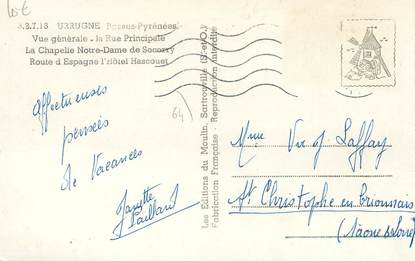 3.2.7.13 URRUGNE Basses-Pyrénées
Vue générale - la Rue Principale
La Chapelle Notre-Dame de Socorry
Route d'Espagne l'Hôtel Hascouet
Affectueuses
pensées
de Vacances
64
Les Editions du Moulin, Sartrouville (S.-et-O.)
Fabrication Française - Reproduction interdite
Mme Laffay
St Christophe en Brionnais
(Saône & Loire)